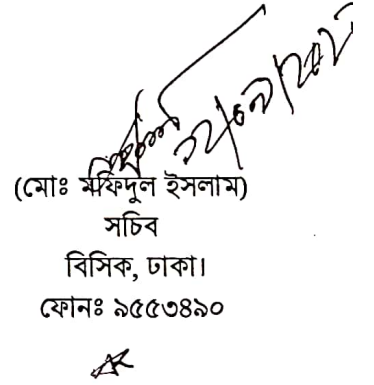 (মোঃ মফিদুল ইসলাম)
সচিব
বিসিক, ঢাকা।
ফোনঃ ৯৫৫৩৪৯০